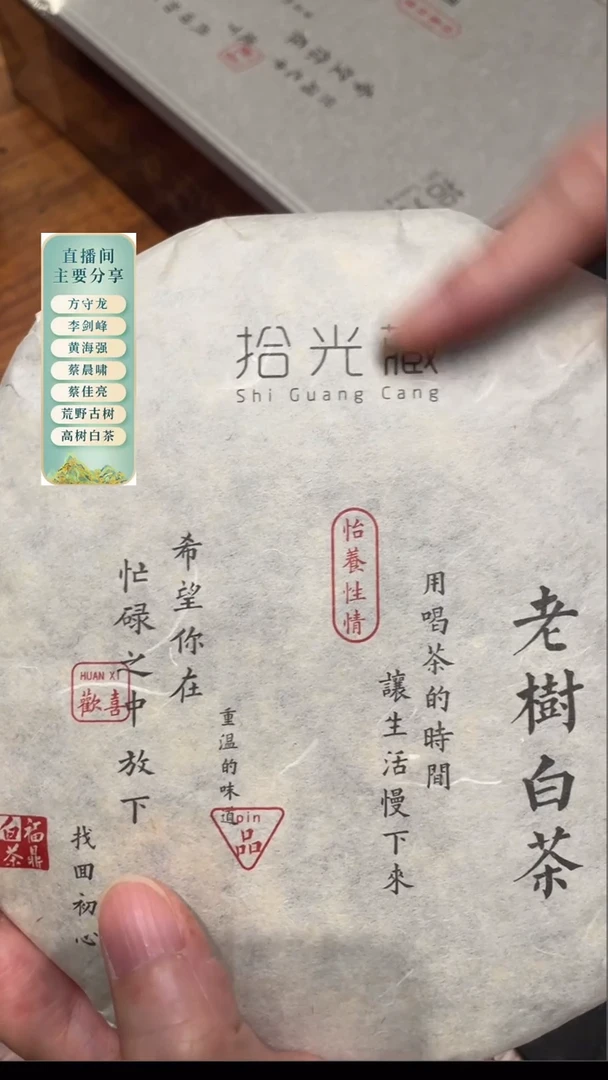 直播间
主要分享
方守龙
李剑峰
黄海强
蔡晨啸
蔡佳亮
荒野古树
高树白茶
拾光藏
Shi Guang Cang
老樹白茶
用喝茶的時間
讓生活慢下來
怡養性情
重溫的味道
pin
品
希望你在
忙碌之中放下
HUAN XI
歡喜
找回初心
福鼎
白茶